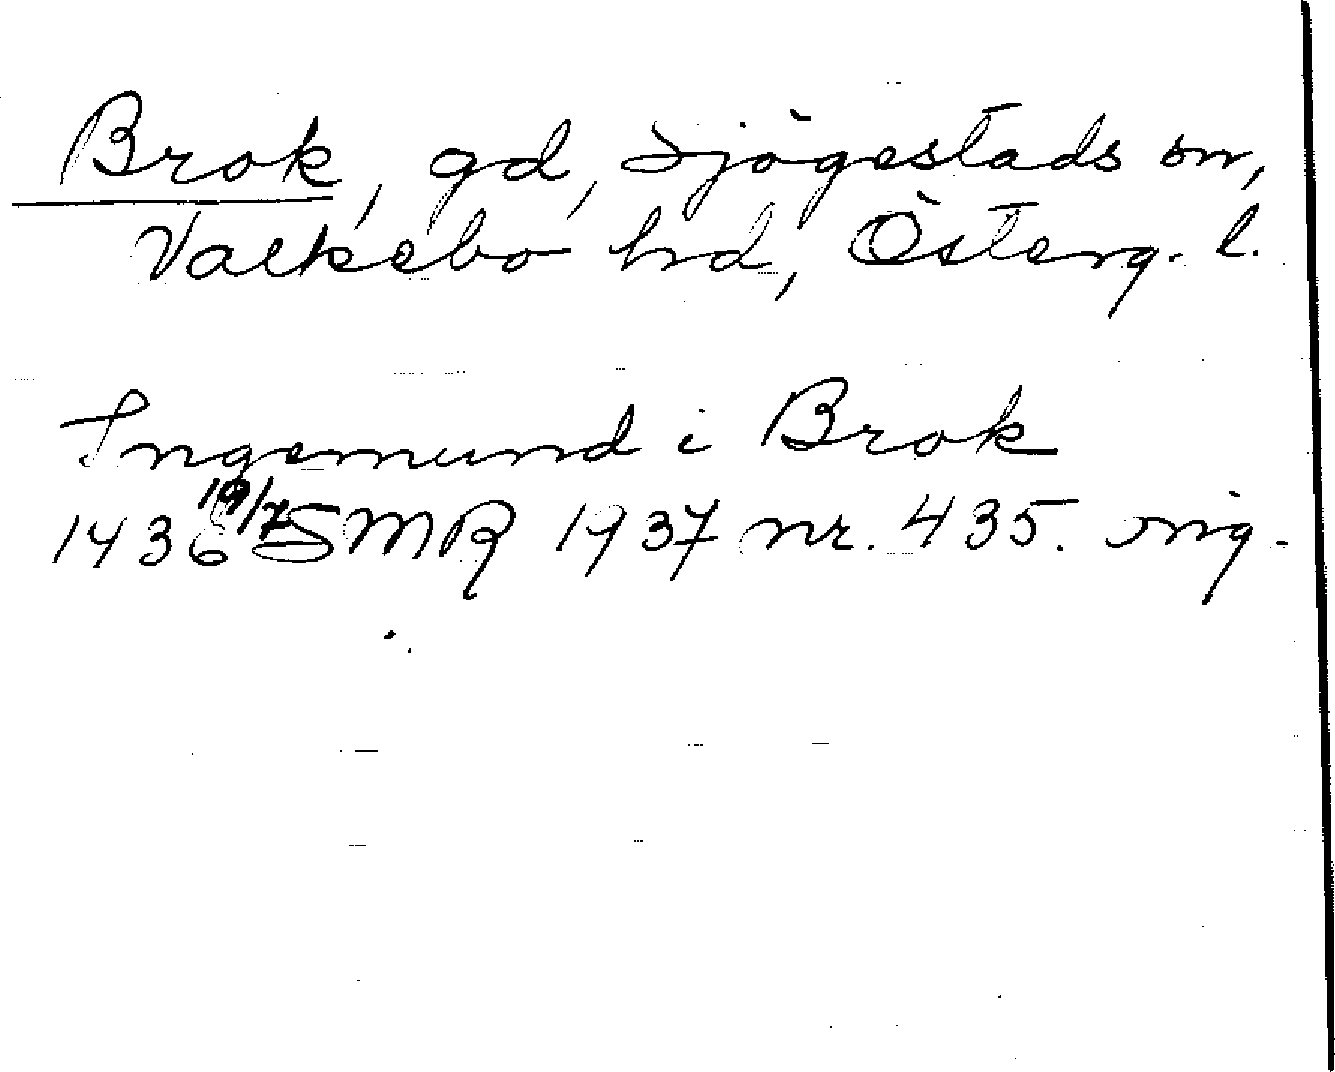 Brok, gd, Sjögestads sn,
Valkebo hd, Österg. l.
Ingemund i Brok
1436 19/7 SMR 1937 nr. 435. orig.